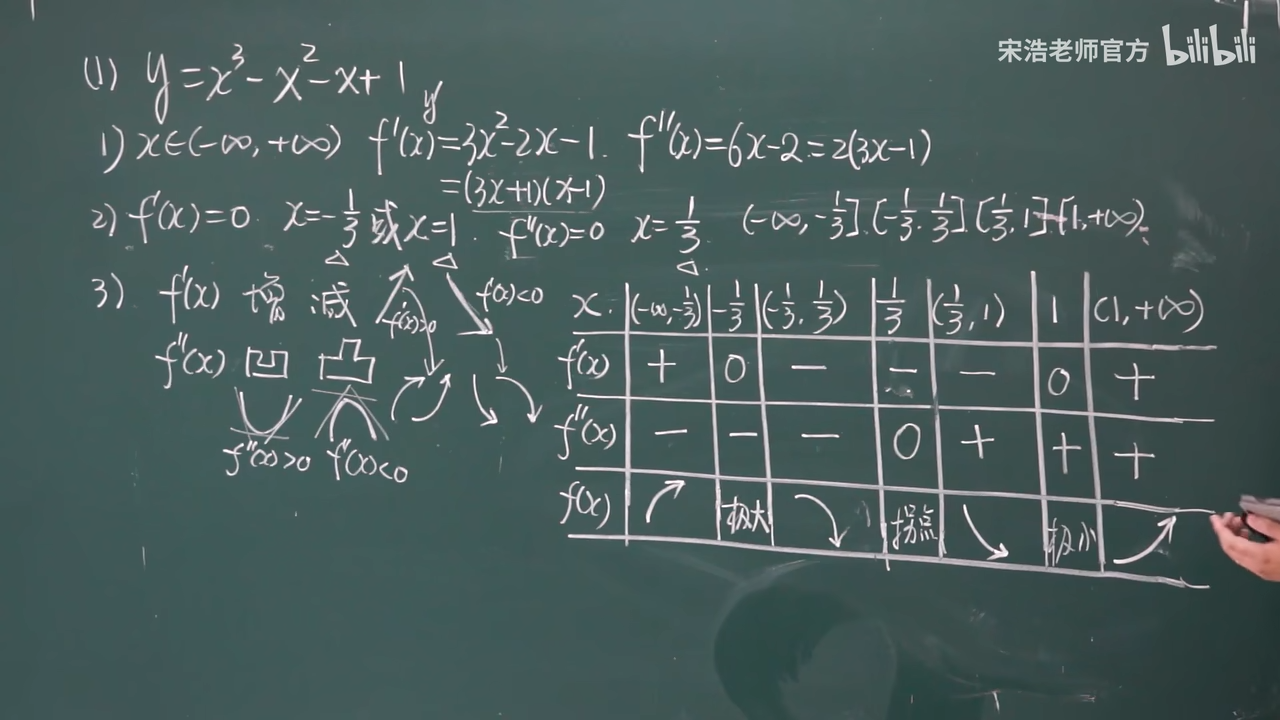 宋浩老师官方 bilibili
(1) y=x³-x²-x+1
y'
1) x∈(-∞,+∞) f'(x)=3x²-2x-1. f''(x)=6x-2=2(3x-1)
=(3x+1)(x-1)
2) f'(x)=0. x=-1/3 或 x=1. f''(x)=0 x=1/3. (-∞,-1/3].[-1/3,1/3][1/3,1].[1,+∞).
3) f'(x) 增 减 f'(x)>0 f'(x)<0
f''(x) 凹 凸
f''(x)>0 f''(x)<0
x. (-∞,-1/3) -1/3 (-1/3,1/3) 1/3 (1/3,1) 1 (1,+∞)
f'(x) + 0 - - - 0 +
f''(x) - - - 0 + + +
f(x) 极大 拐点 极小